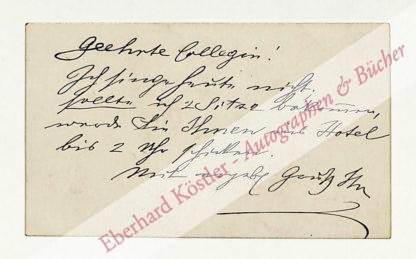 Geehrte Collegin!
Ich singe heute nicht.
sollte ich 2 Sitze bekommen,
werde Sie Ihnen ins Hotel
bis 2 Uhr schicken.
Mit
Eberhard Köstler - Autographen & Bücher